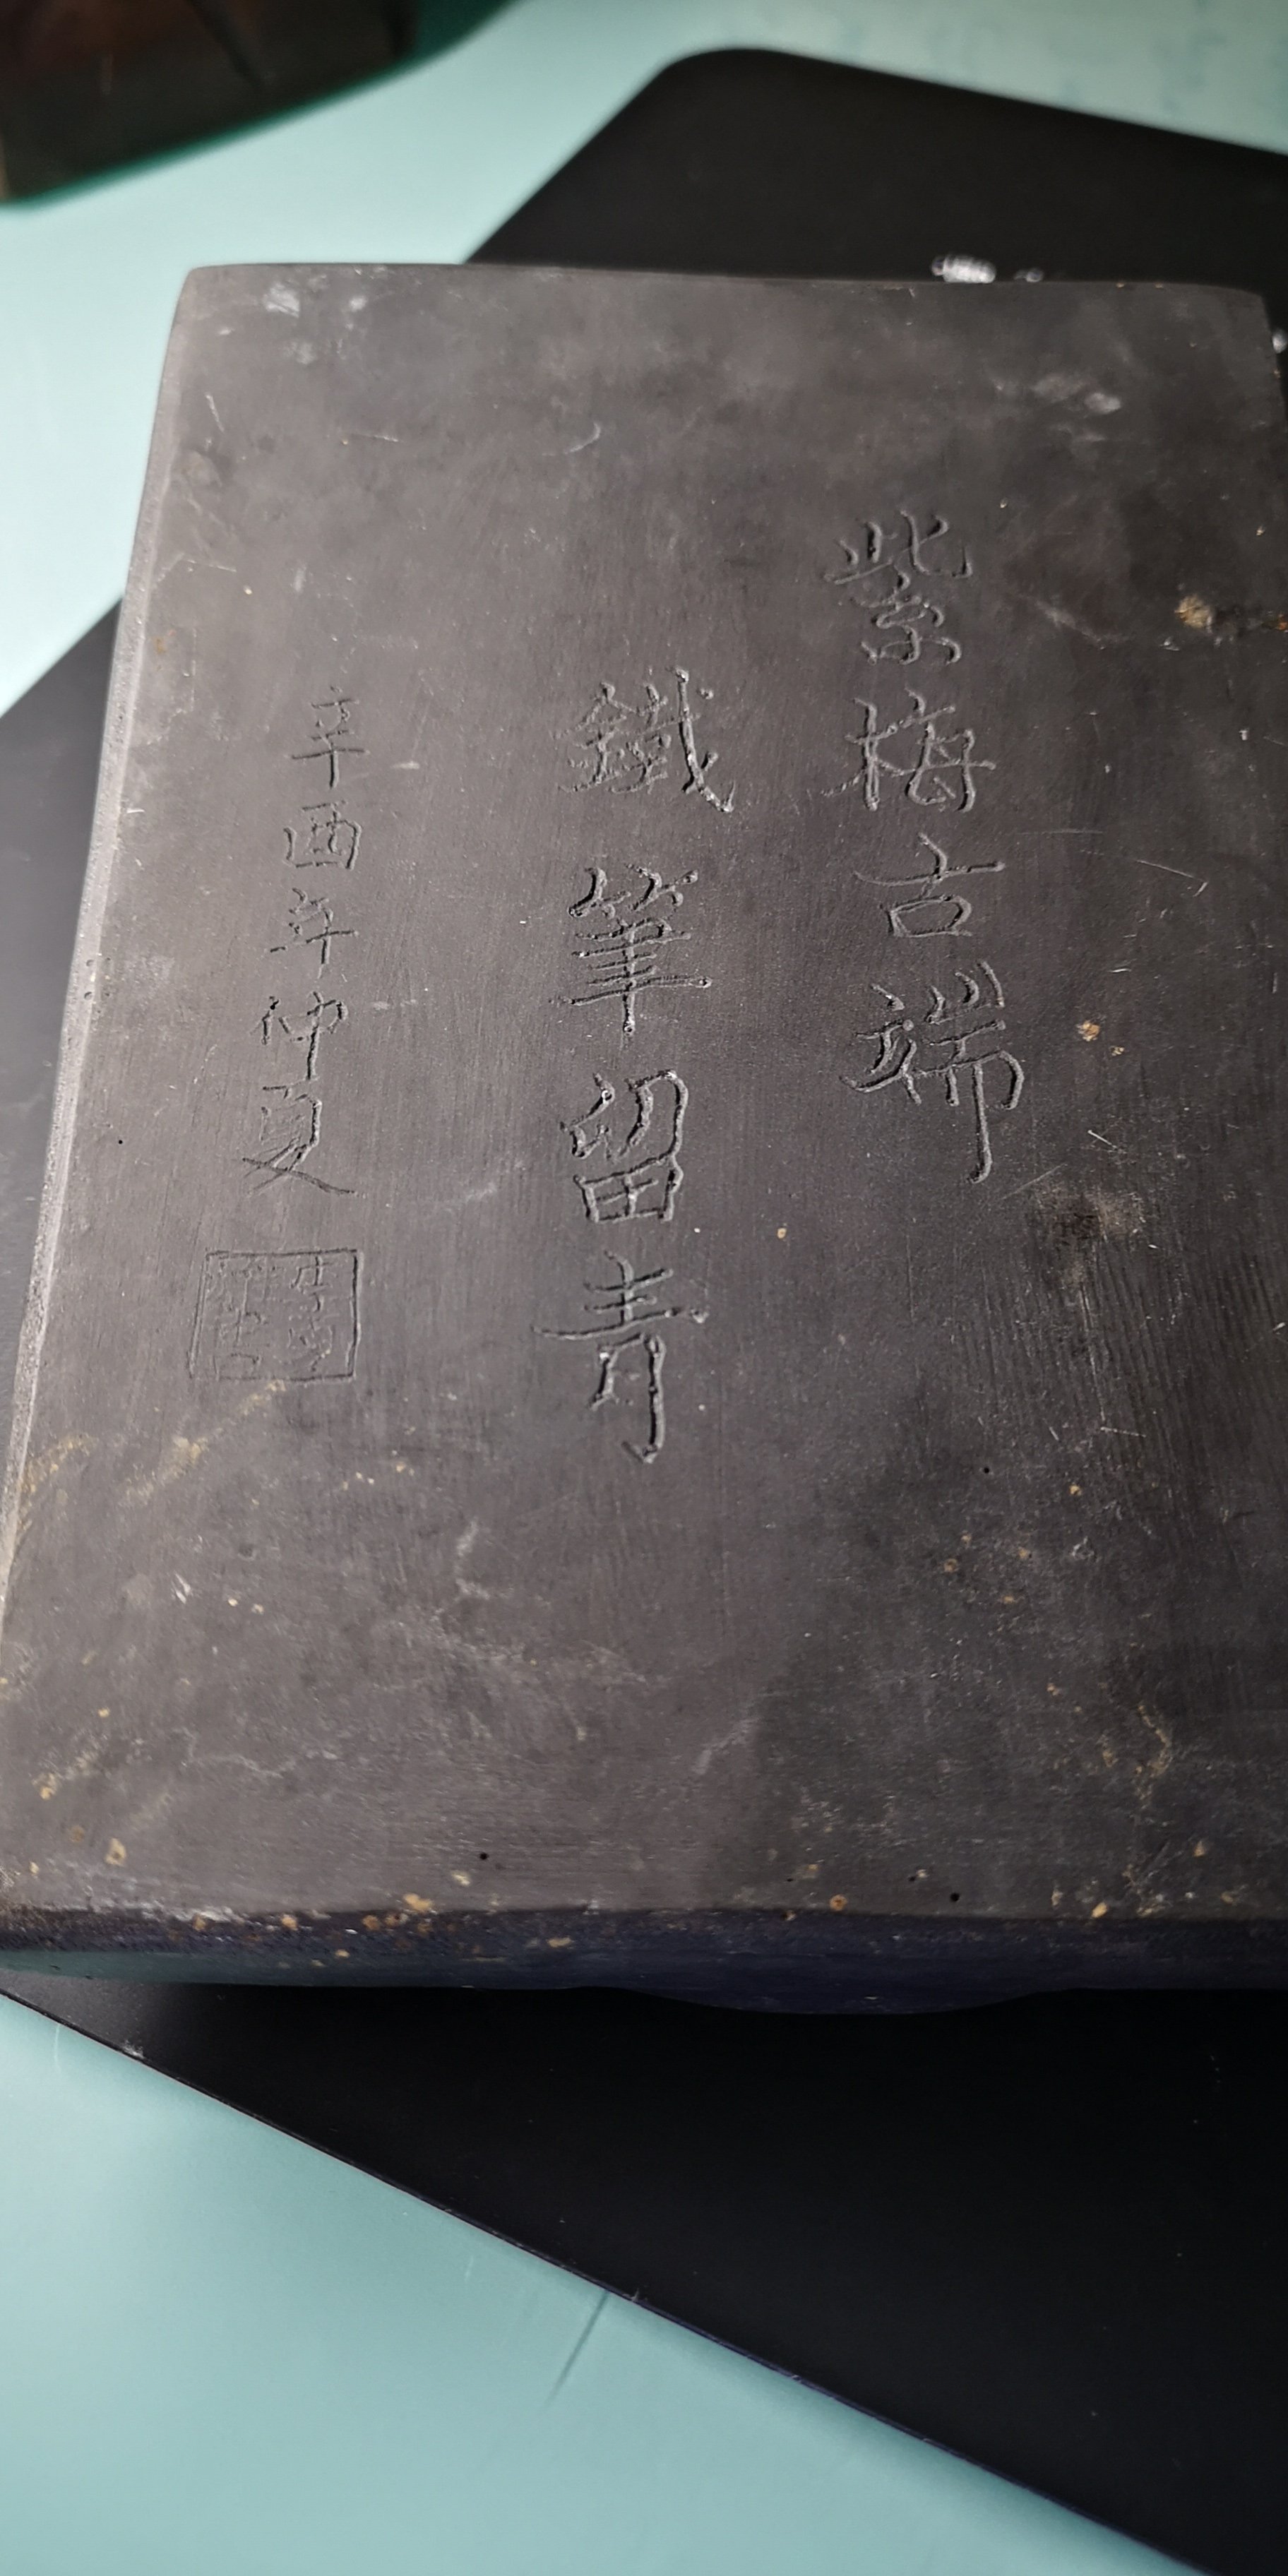 紫梅古端
鐵筆留青
辛酉年仲夏